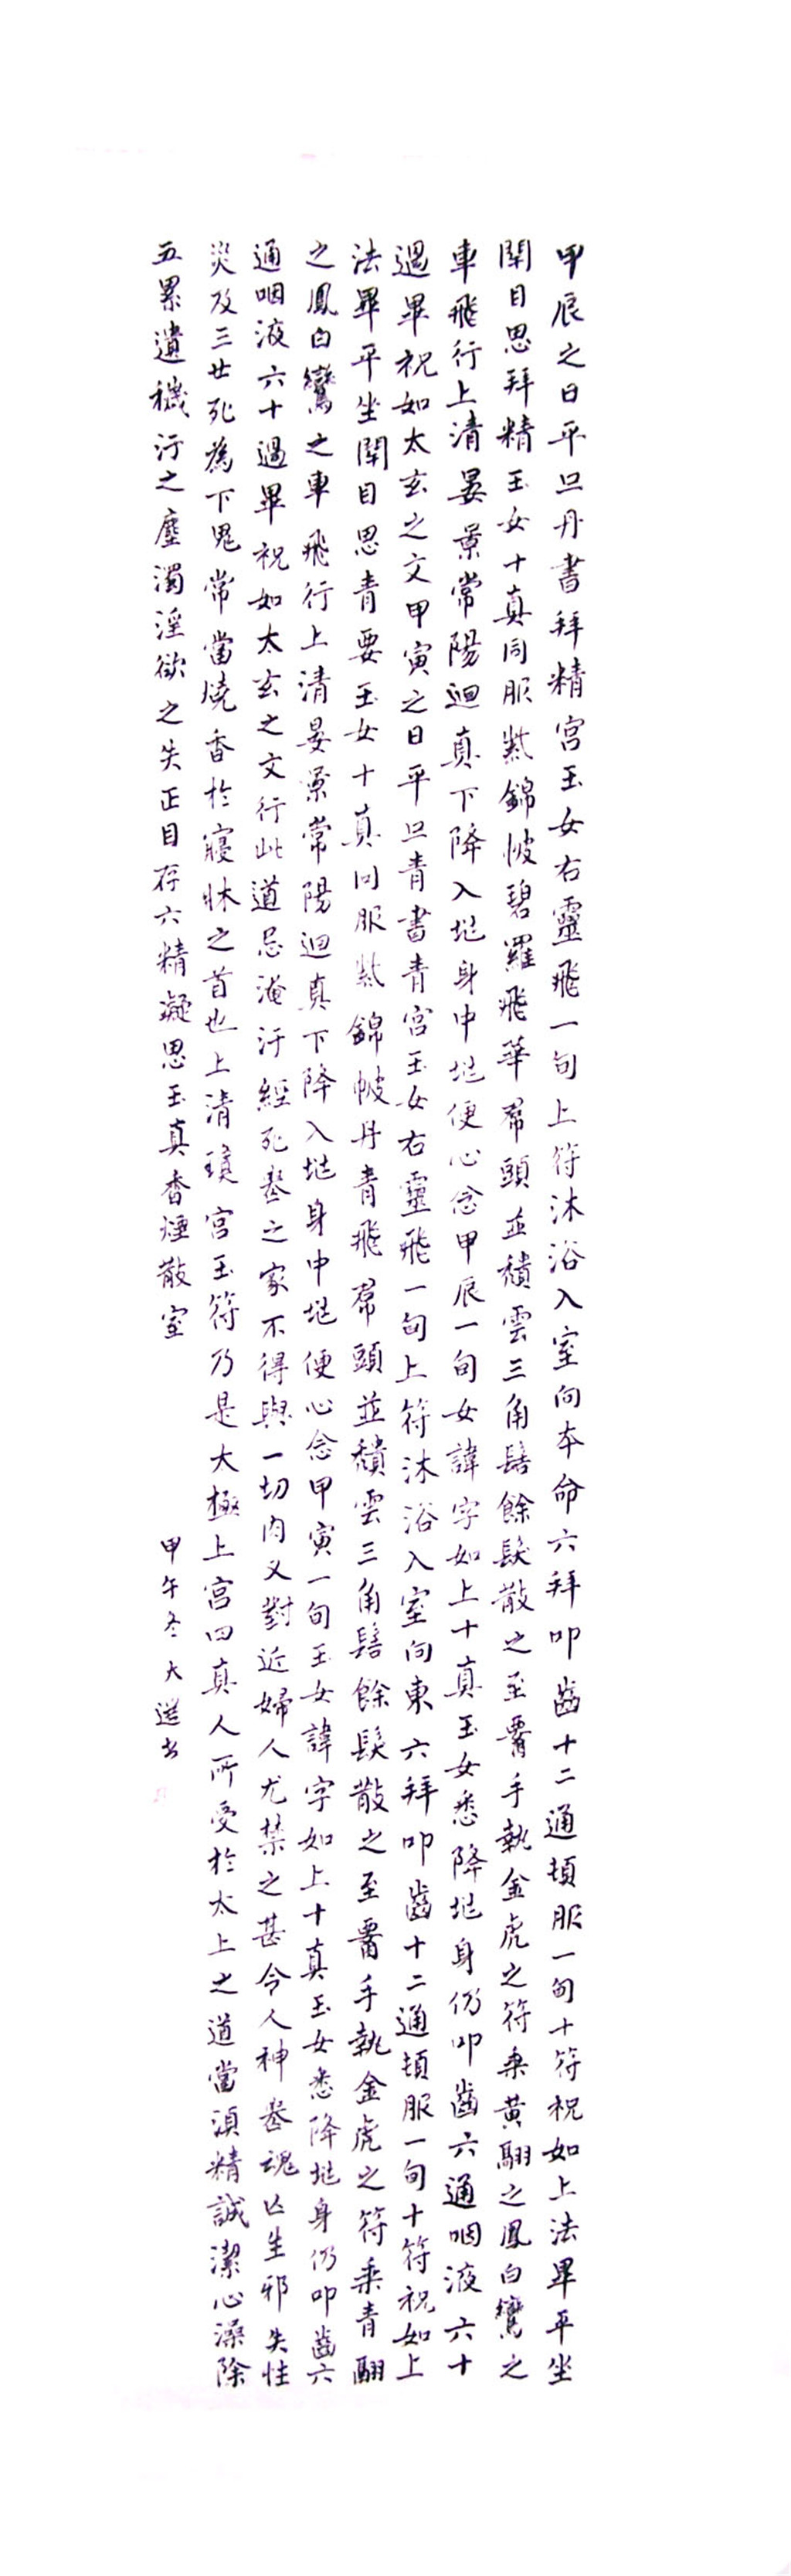 甲辰之日平旦丹書拜精宫玉女右靈飛一旬上符沐浴入室向本命六拜叩齒十二通頓服一旬十符祝如上法畢平坐
閉目思拜精玉女十真同服紫錦帔碧羅飛華帬頭並穨雲三角髻餘髮散之至𦝫手執金虎之符乘黄翮之鳳白鸞之
車飛行上清晏景常陽迴真下降入兆身中兆便心念甲辰一旬女諱字如上十真玉女悉降兆身仍叩齒六通咽液六十
過畢祝如太玄之文甲寅之日平旦青書青宫玉女右靈飛一旬上符沐浴入室向東六拜叩齒十二通頓服一旬十符祝如上
法畢平坐閉目思青要玉女十真同服紫錦帔丹青飛帬頭並穨雲三角髻餘髮散之至𦝫手執金虎之符乘青翮
之鳳白鸞之車飛行上清晏景常陽迴真下降入兆身中兆便心念甲寅一旬玉女諱字如上十真玉女悉降兆身仍叩齒六
通咽液六十過畢祝如太玄之文行此道忌淹汙經死喪之家不得與一切肉又對近婦人尤禁之甚令人神喪魂亡生邪失性
災及三世死為下鬼常當燒香於寢牀之首也上清瓊宫玉符乃是大極上宫四真人所受於太上之道當須精誠潔心澡除
五累遺穢汙之塵濁淫欲之失正目存六精凝思玉真香煙散室
甲午冬大選書